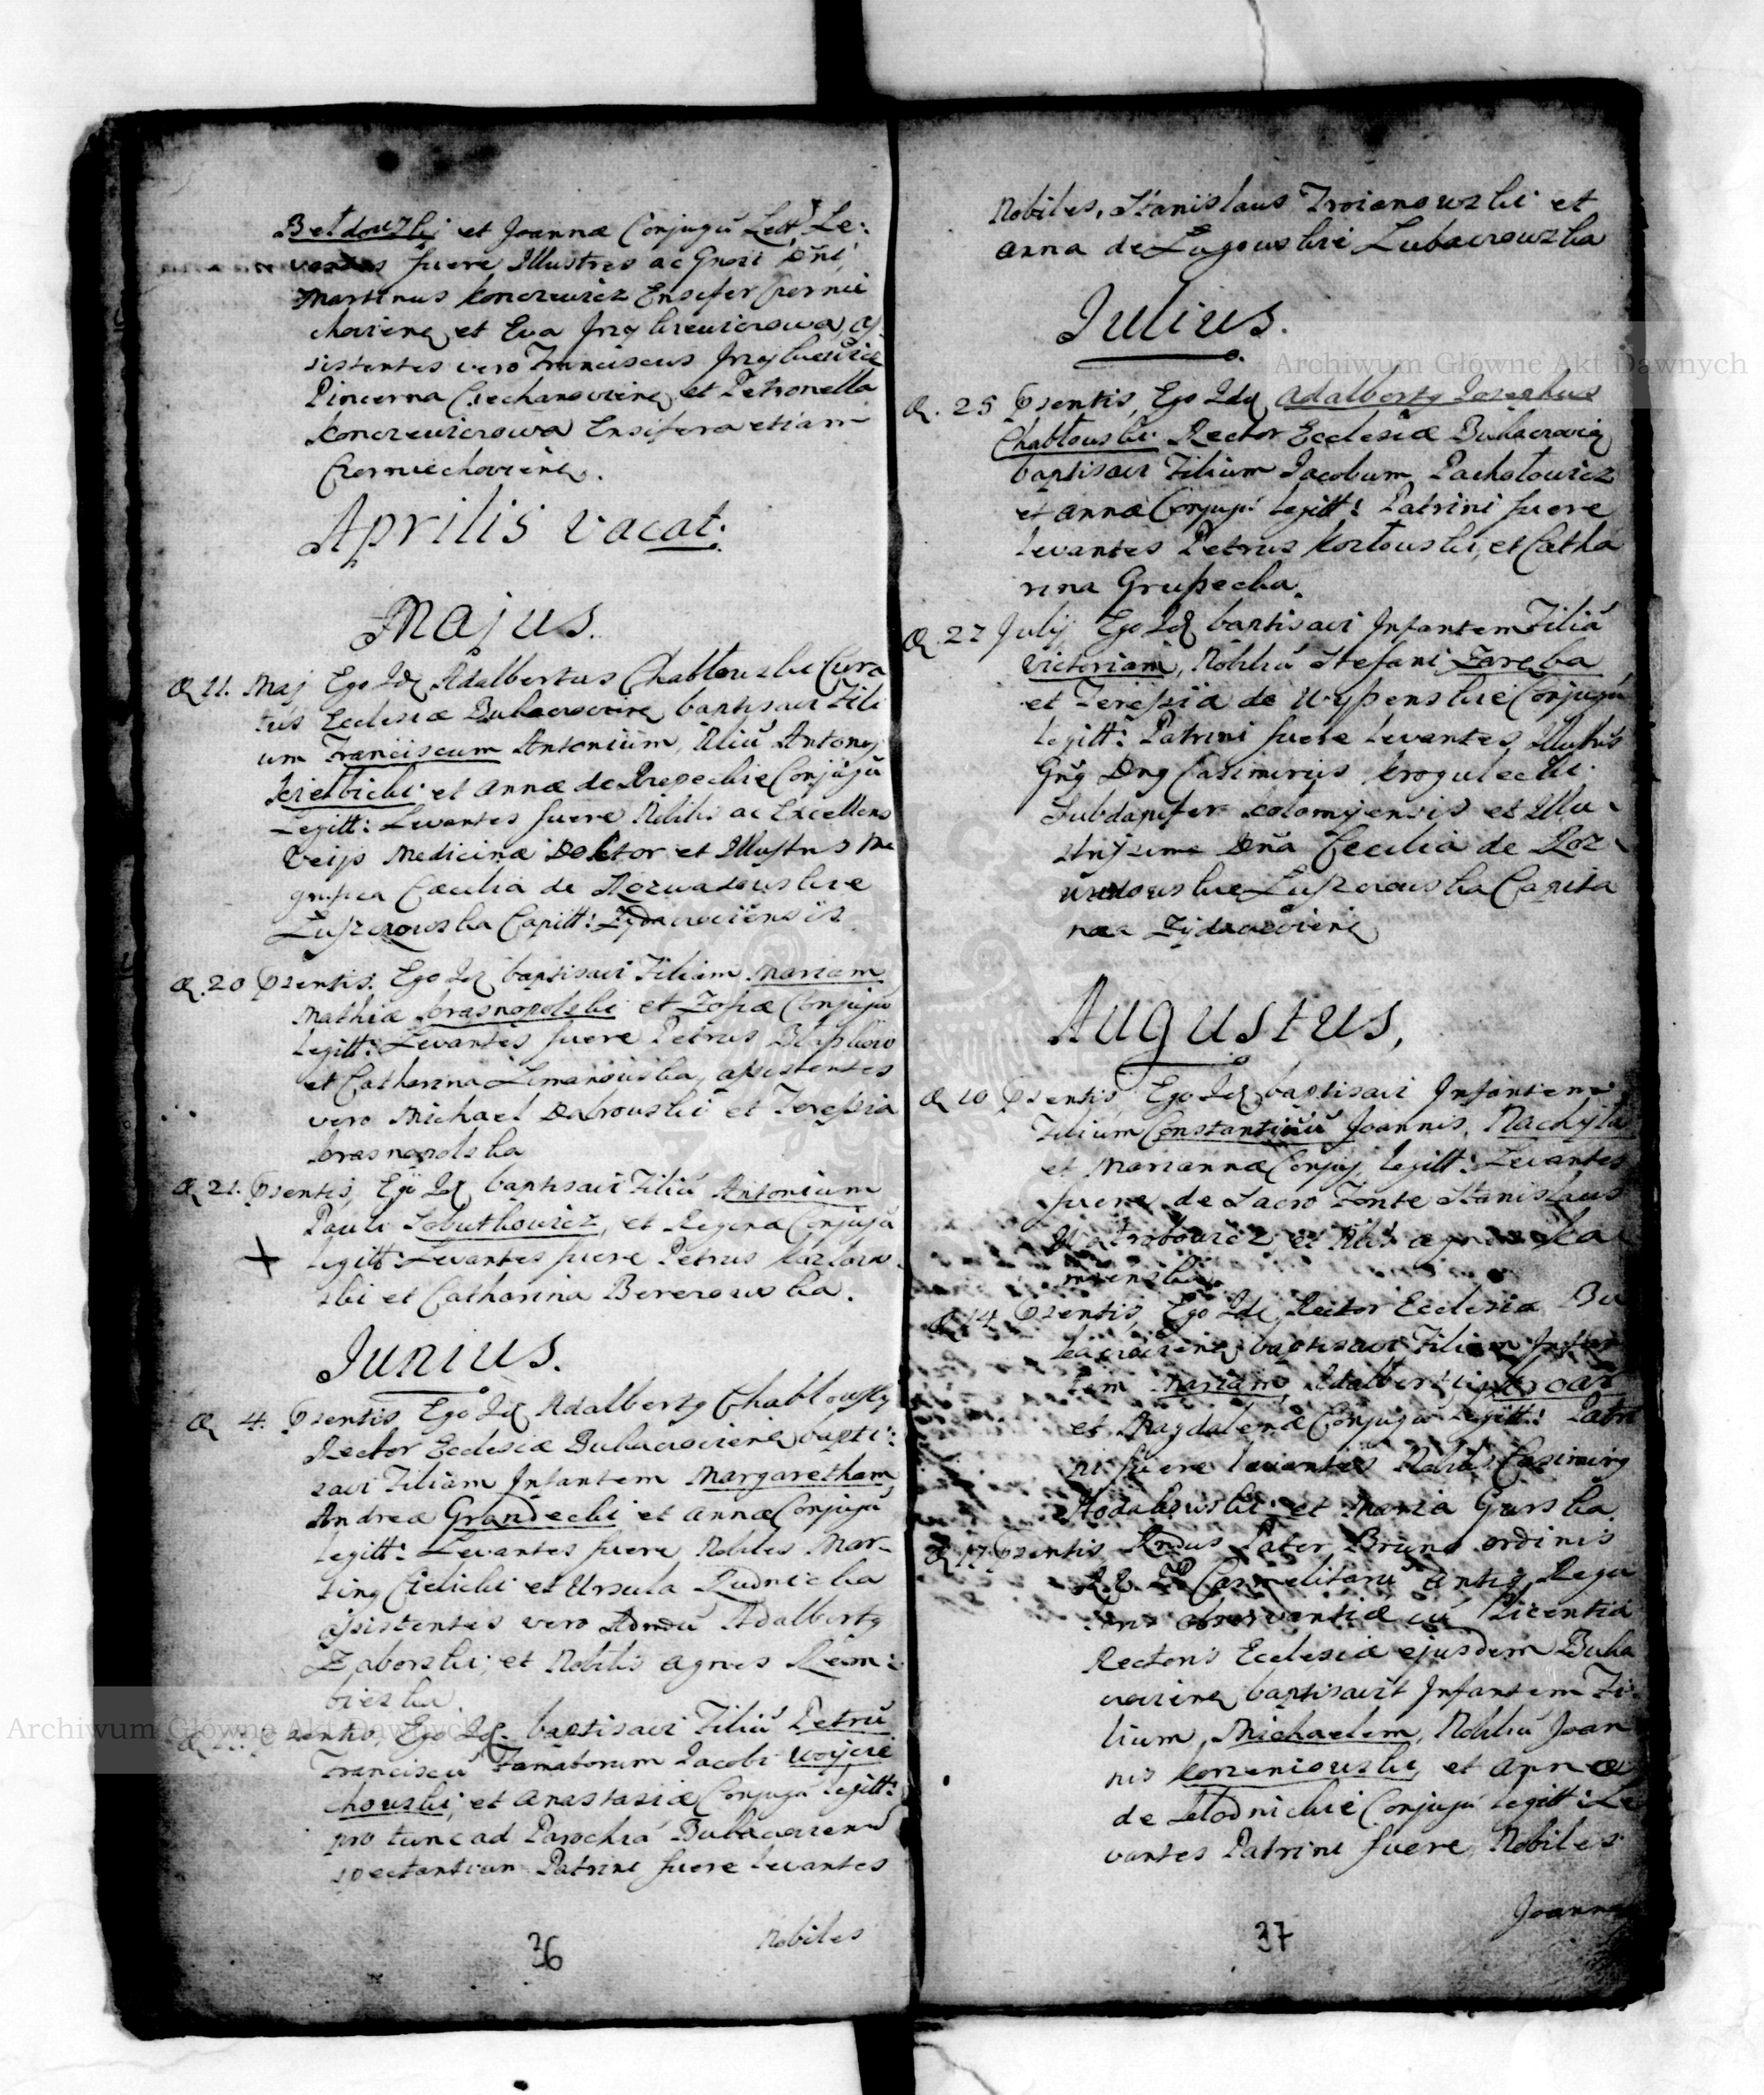 Bełdowski et Joannæ Conjugū Legtt: Le:
vantes fuere Illustres ac Gnosi Dñi,
Martinus Konczewicz Ensifer Czernie
choviens et Eva Przyłuewiczowa, as
sistentes vero Franciscus
Pincerna Ciechanoviens et Petronella
Konczewiczowa Ensifera etiam
Czerniechoviens.
Aprilis vacat.
Majus.
D. 11. Maj Ego Idē Adalbertus Chabłouski Cura
tus Ecclesiæ Bukacoviens baptisavi Fili
um Franciscum Antonium, Antonij
Kiełbicki et Annæ de Conjugū
Legitt: Levantes fuere Nobilis ac Excellens
Medicinæ Doktor et Illustris Ma
gnifica Cæcilia de Rozwadouskie
Capitt: Zydacoviensis
D. 20 Psentis. Ego Idē baptisavi Filiam Mariam
Mathiæ Krasnopolski et Zofiæ Conjugū
legitt: Levantes fuere Petrus
et Catharina Limanouska, assistentes
vero Michael Dabrouski et Teressia
Krasnopolska
D. 21. Psentis, Ego Idē baptisavi Filiū Antonium
Pauli Sobutkowicz, et Reginæ Conjugū
legitt: Levantes fuere Petrus Kozłow
ski et Catharina Berezowska.
Junius.
D. 4. Psentis Ego Idē Adalbertg Chabłouski
Rector Ecclesiæ Bukacoviens bapti:
savi Filiam Infantem Margaretham
Andreæ Grandecki et Annæ Conjugū
legitt: Levantes fuere Nobiles Mar-
ting Cielicki et Ursula Rudnicka
assistentes vero Adalbertg
Zaborski, et Nobilis Agnes
bierska.
Psentis, Ego Idē baptisavi Filiū Petrū
Franciscū Famatorum Jacobi Woycie
chouski, et Anastasiæ Conjugū legitt:
pro tunc ad Parochiā Bukacoviens
spectantium Patrini fuere levantes
36
Nobiles
Nobiles, Stanislaus Troianowski et
Anna de Ługouskie Lubaczowska
Julius.
D. 25 Psentis, Ego Idē Adalbertg Josephus
Chabłouski Rector Ecclesiæ Bukacoviens
baptisavi Filium Jacobum Pachołowicz
et Annæ Conjugū legitt: Patrini fuere
levantes Petrus Kozłouski, et Catha
rina Grussecka.
D. 27 Julij Ego Idē baptisavi Infantem Filiā
Victoriam, Nobiliū Stefani Zaręba
et Teressiæ de Wyssenskie Conjugū
legitt: Patrini fuere levantes, Illustris
Gng Dng Casimirus Krogulecki
Subdapifer Kolomyensis et Illu-
strissima Dña Cecilia de Roz-
wadouskie Capita
nea Zydaczoviens
Augustus,
D. 10 Psentis, Ego Idē baptisavi Infantem
Filium Constantinū Joannis, Rachyła
et Mariannæ Conjug legitt: Levantes
fuere de Sacro Fonte Stanislaus
et Agnes Ka
mienska
D. 14 Psentis, Ego Idē Rector Ecclesiæ Bu
kacoviens baptisavi Filiam Infan
tem Mariam Adalberti
et Magdalenæ Conjugū legitt: Patri
ni fuere levantes Nobilis Casimirg
et Maria Gurska
D. 17 Psentis Rndus Pater Bruno ordinis
Carmelitarū Antiq. Regu
laris observantiæ cū licentia
Rectoris Ecclesiæ ejusdem Buka
coviens baptisavit Infantem Fi-
lium, Michaelem, Nobiliū Joan
nis Korzeniouski, et Annæ
de Conjugū legitt: Le
vantes Patrini fuere Nobiles
37
Joannes
Archiwum Główne Akt Dawnych
Archiwum Główne Akt Dawnych